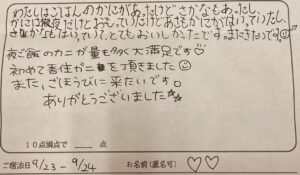 わたしはごはんのかにがあったけどさかなもあったし、
かにだけだとおもっていたけどあさもかにがついていたし、
さかなもついていてとてもおいしかったです。またきたいです。
夜ご飯のカニが量も多く大満足です♡
初めて香住ガニを頂きました☺
また、ごほうびに来たいです。
ありがとうございました☆☆
10点満点で 点
ご宿泊日 9/23 - 9/24 お名前(匿名可) ♡♡